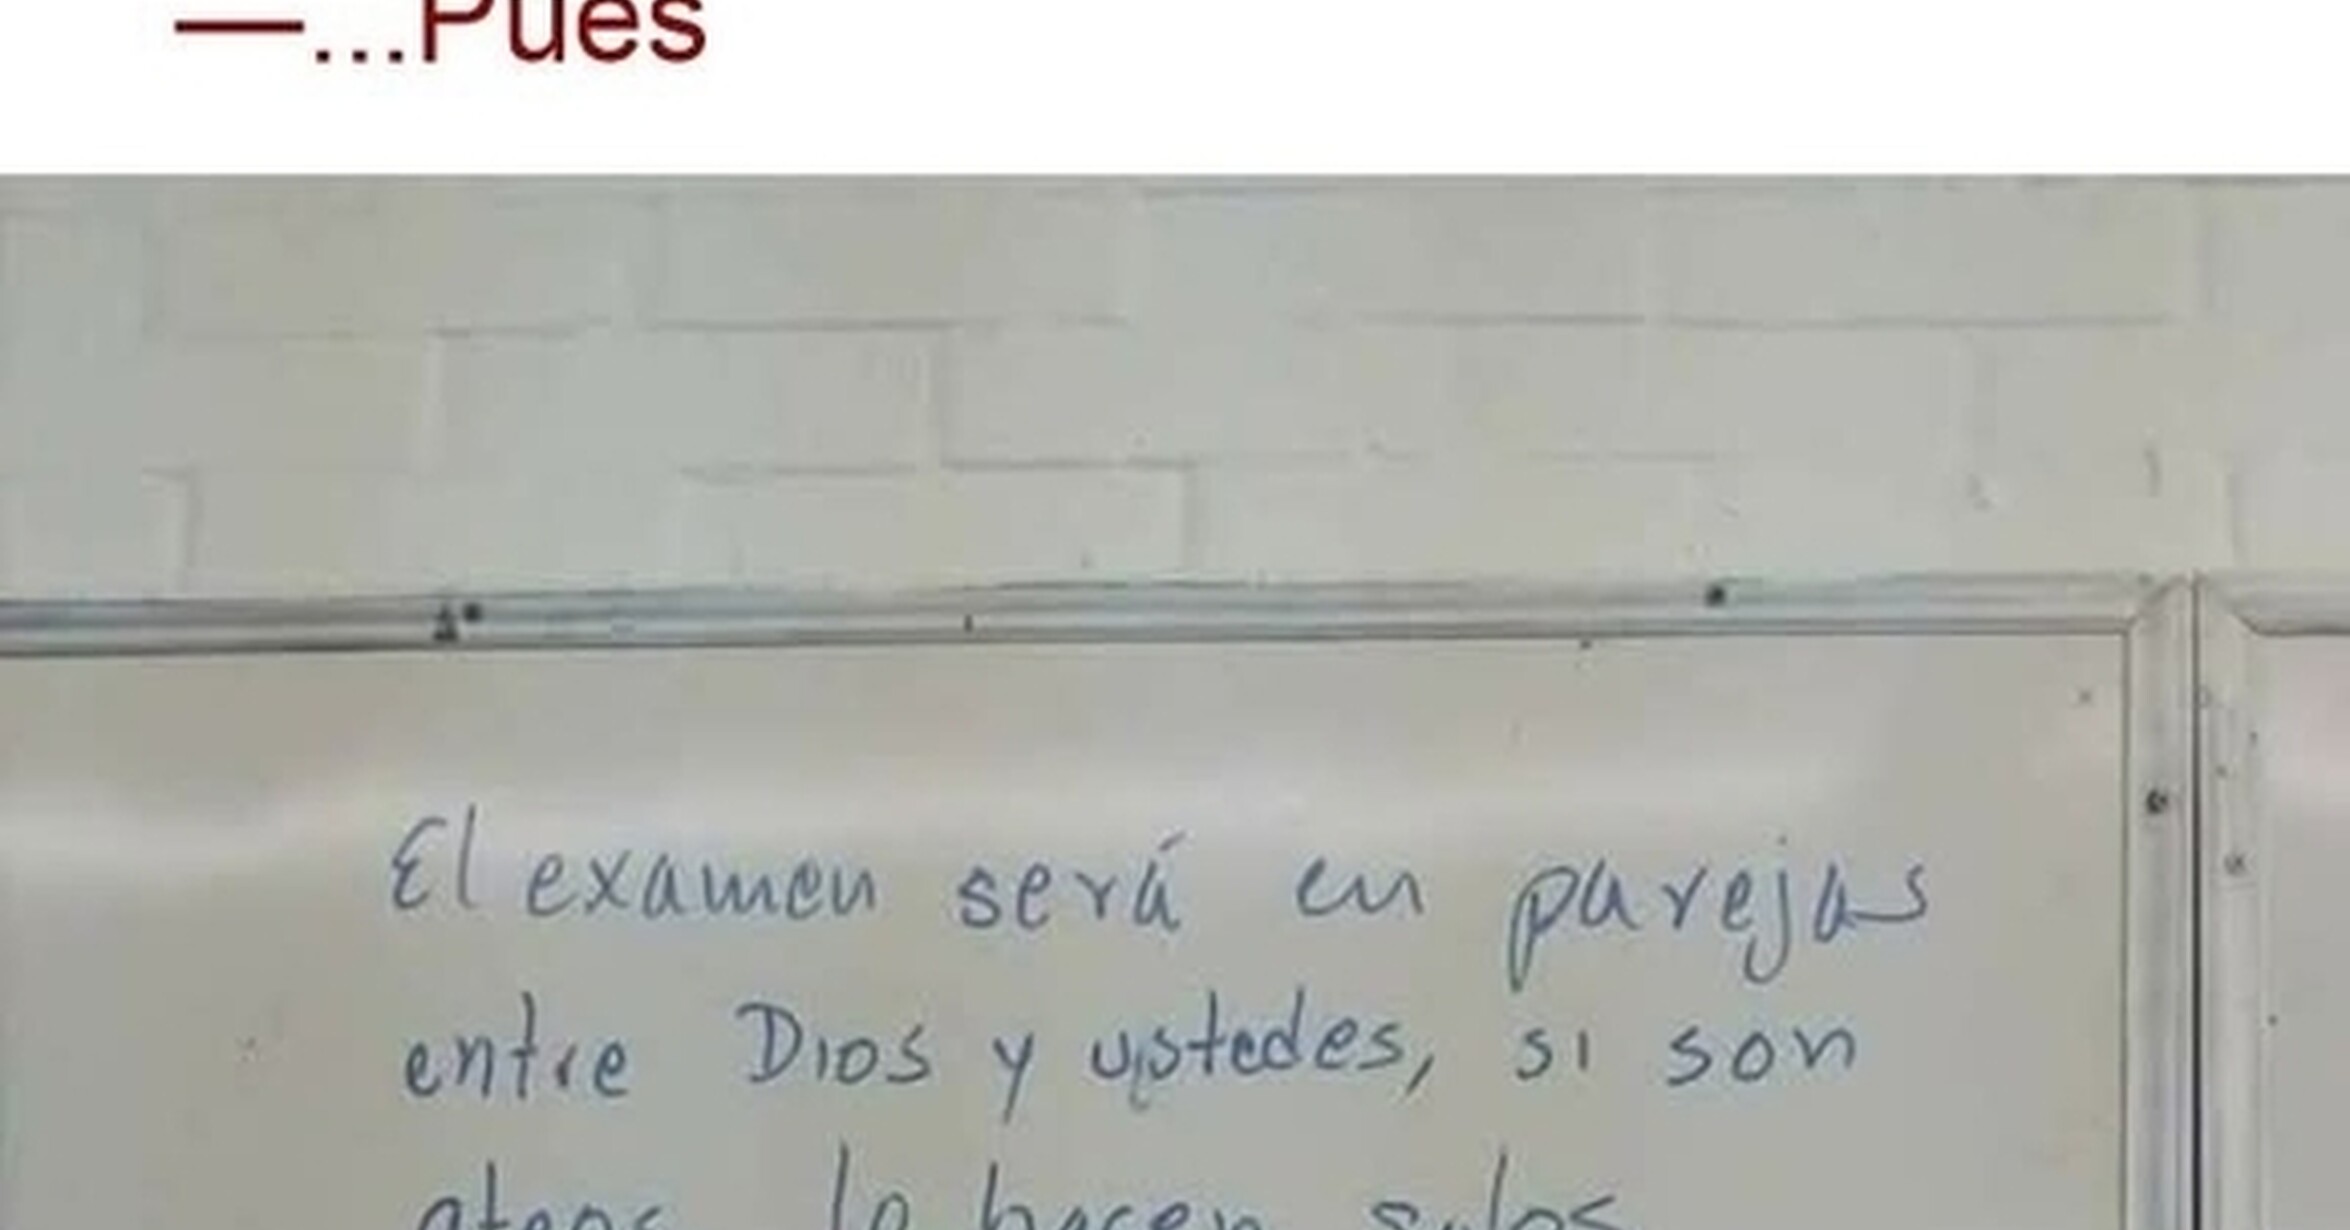 —...Pues
El examen será en parejas
entre Dios y ustedes, si son
ateos lo hacen solos